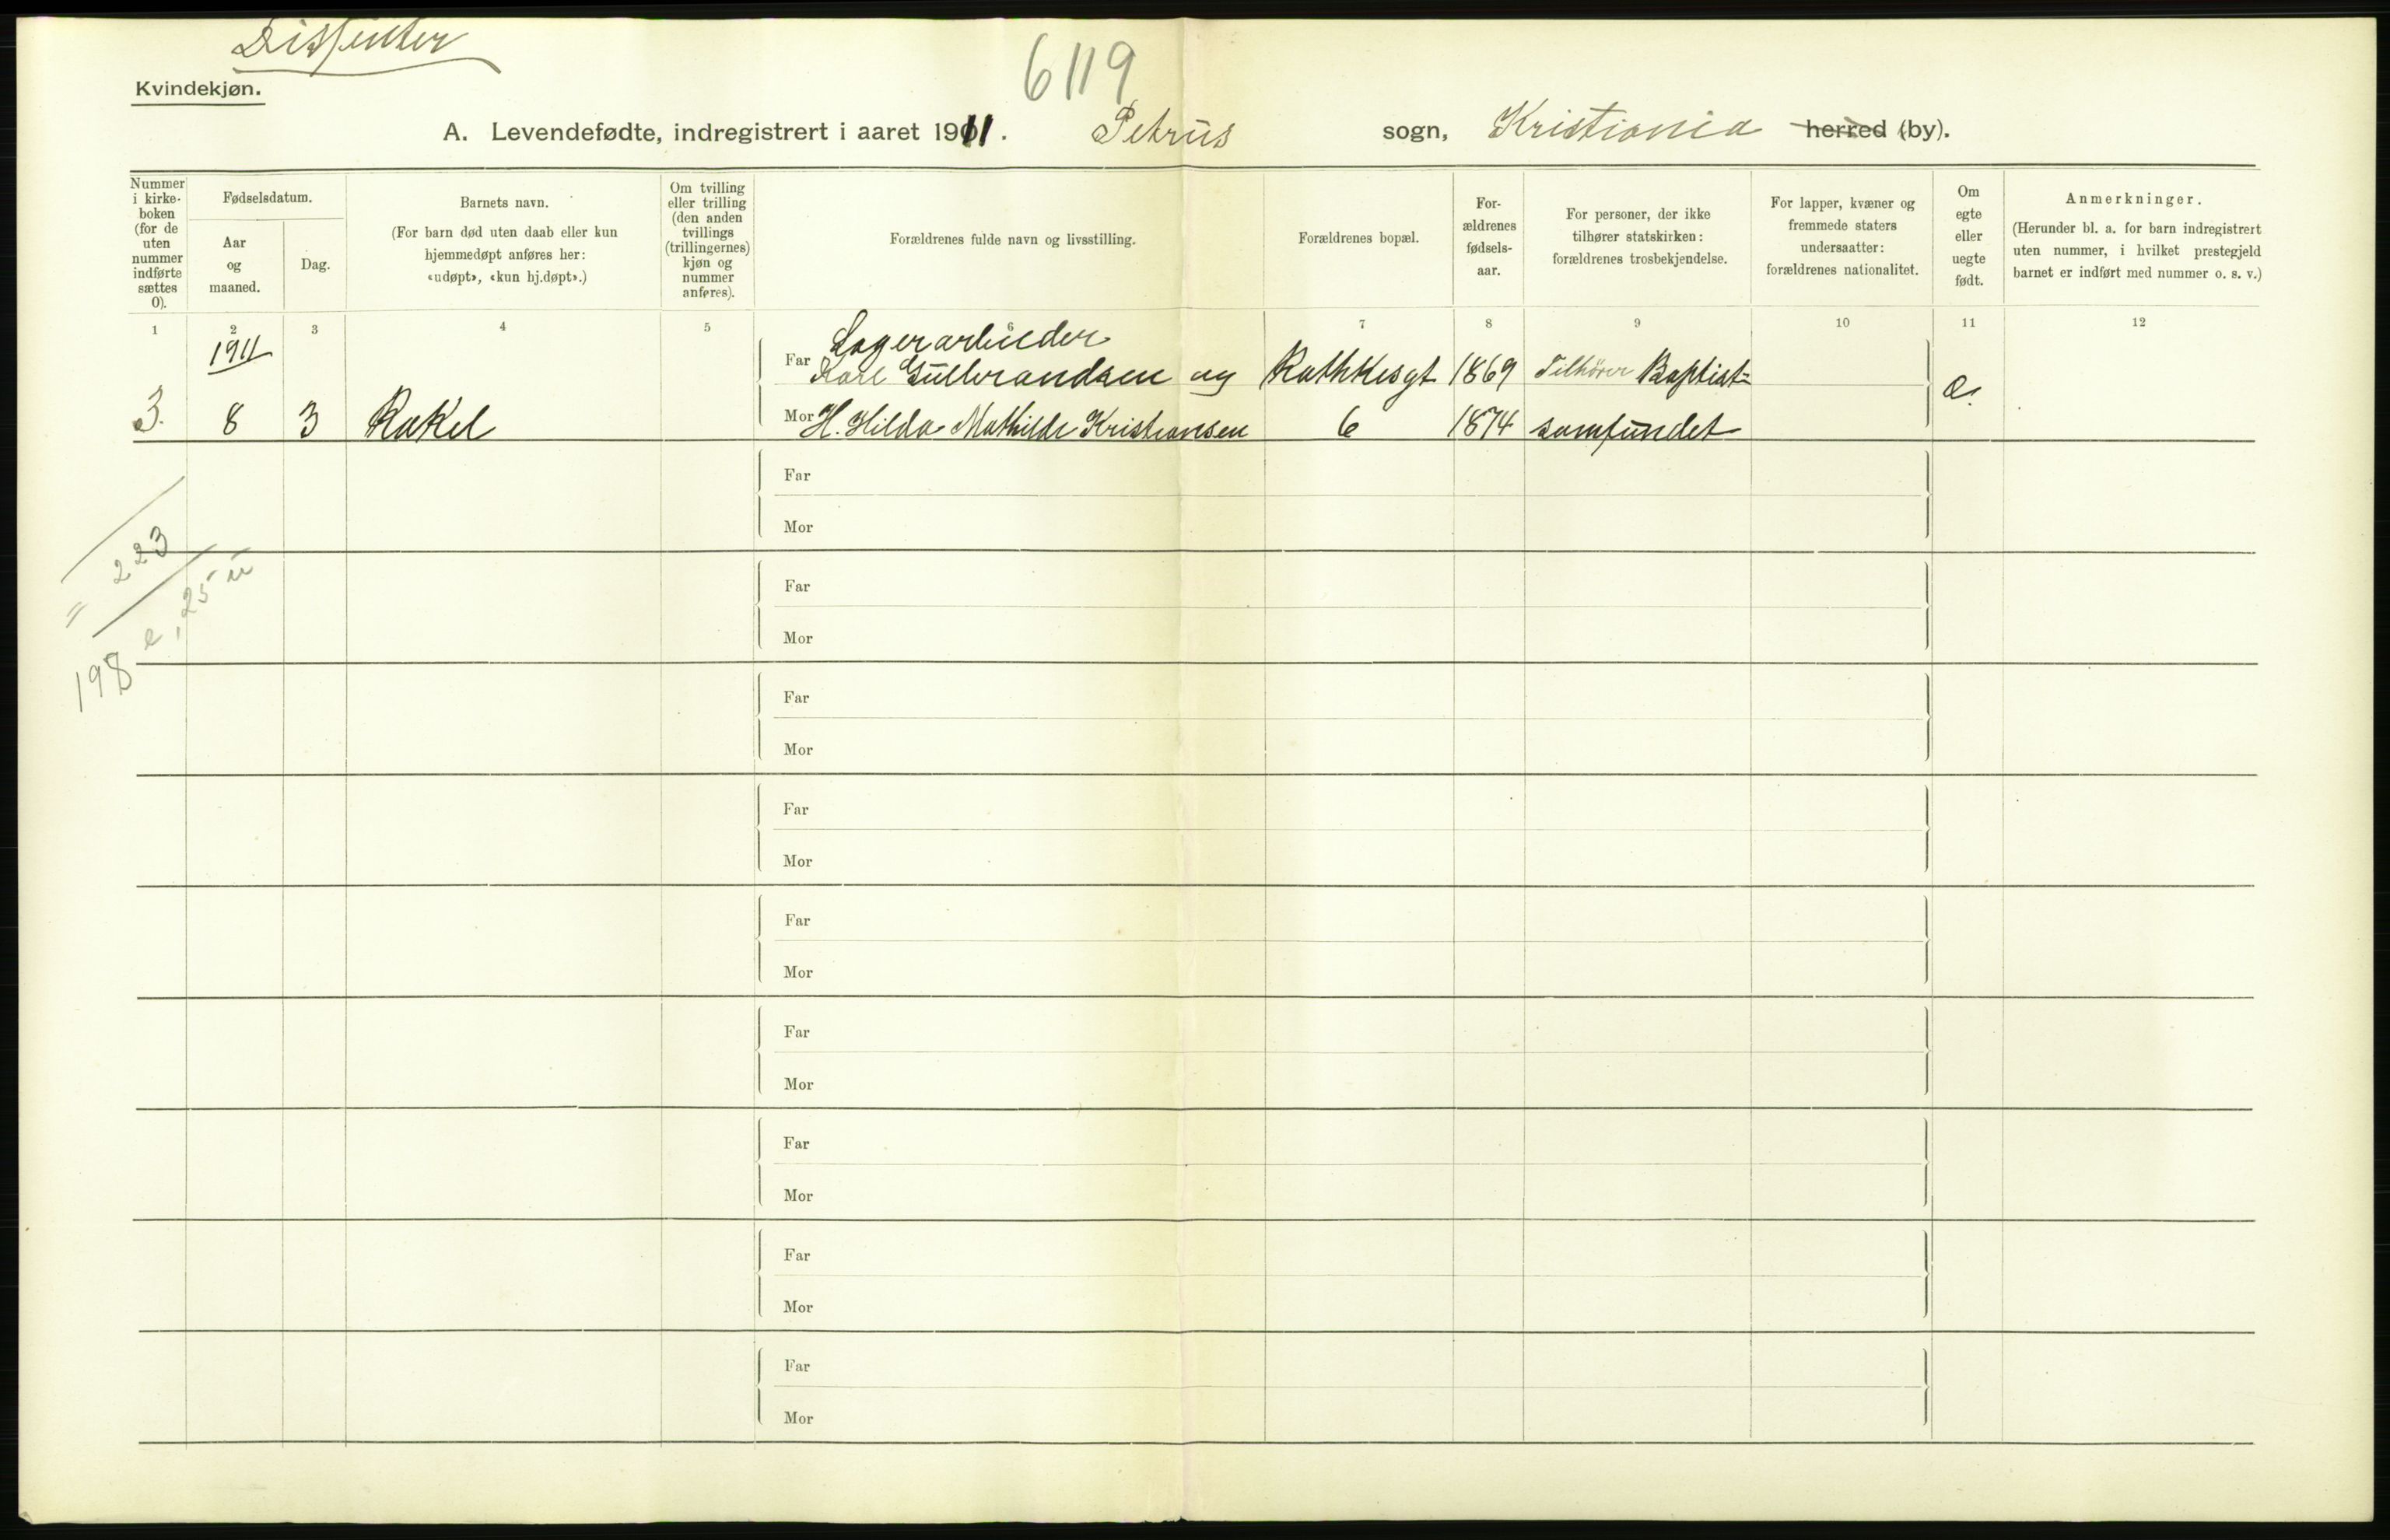 Dissenter
Kvindekjøn.
6119
A. Levendefødte, indregistrert i aaret 1911. Petrus sogn, Kristiania herred (by).
Nummer i kirke-boken (for de uten nummer indførte sættes 0).
Fødselsdatum.
Aar og maaned.
Dag.
Barnets navn.
(For barn død uten daab eller kun hjemmedøpt anføres her: «udøpt», «kun hj.døpt».)
Om tvilling eller trilling (den anden tvillings (trillingernes) kjøn og nummer anføres).
Forældrenes fulde navn og livsstilling.
Forældrenes bopæl.
For-ældrenes fødsels-aar.
For personer, der ikke tilhører statskirken: forældrenes trosbekjendelse.
For lapper, kvæner og fremmede staters undersaatter: forældrenes nationalitet.
Om egte eller uegte født.
Anmerkninger.
(Herunder bl. a. for barn indregistrert uten nummer, i hvilket prestegjeld barnet er indført med nummer o. s. v.)
1 2 3 4 5 6 7 8 9 10 11 12
1911 Lagerarbeider
Far Karl Gulbrandsen og Rathkesgt 1869 Tilhører Baptist=
3. 8 3 Rakel Mor H. Hilda Mathilde Kristiansen 6 1874 samfundet e.
Far
Mor
= 223
198 e, 25 u
Far
Mor
Far
Mor
Far
Mor
Far
Mor
Far
Mor
Far
Mor
Far
Mor
Far
Mor